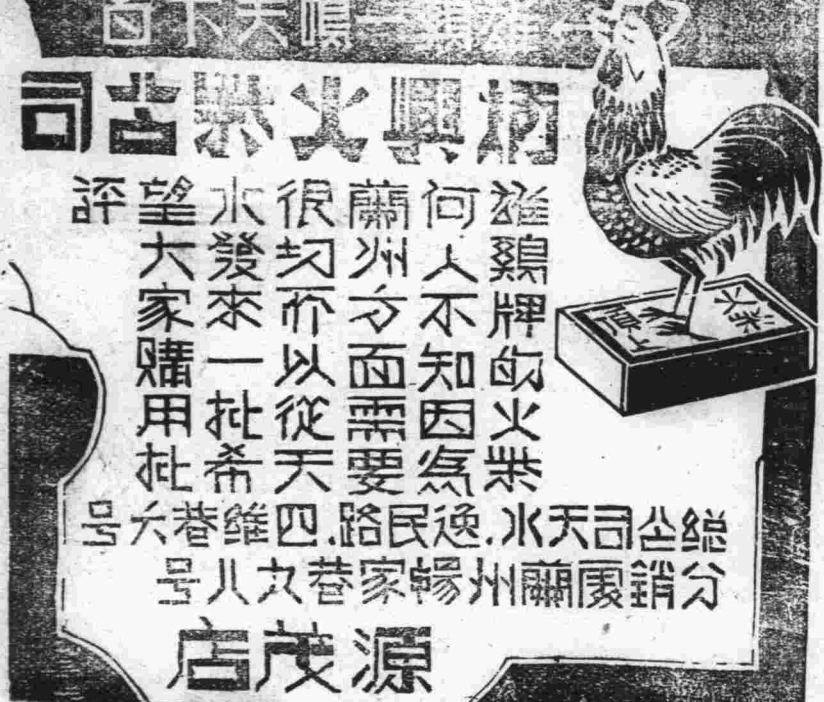 雄鷄一鳴天下白
炳興火柴公司
雄鷄牌的火柴
何人不知因為
蘭州方面需要
很切所以從天
水發來一批希
望大家購用批
評
総公司天水.逸民路.四維巷六号
分銷處蘭州暢家巷九八号
源茂店
火柴